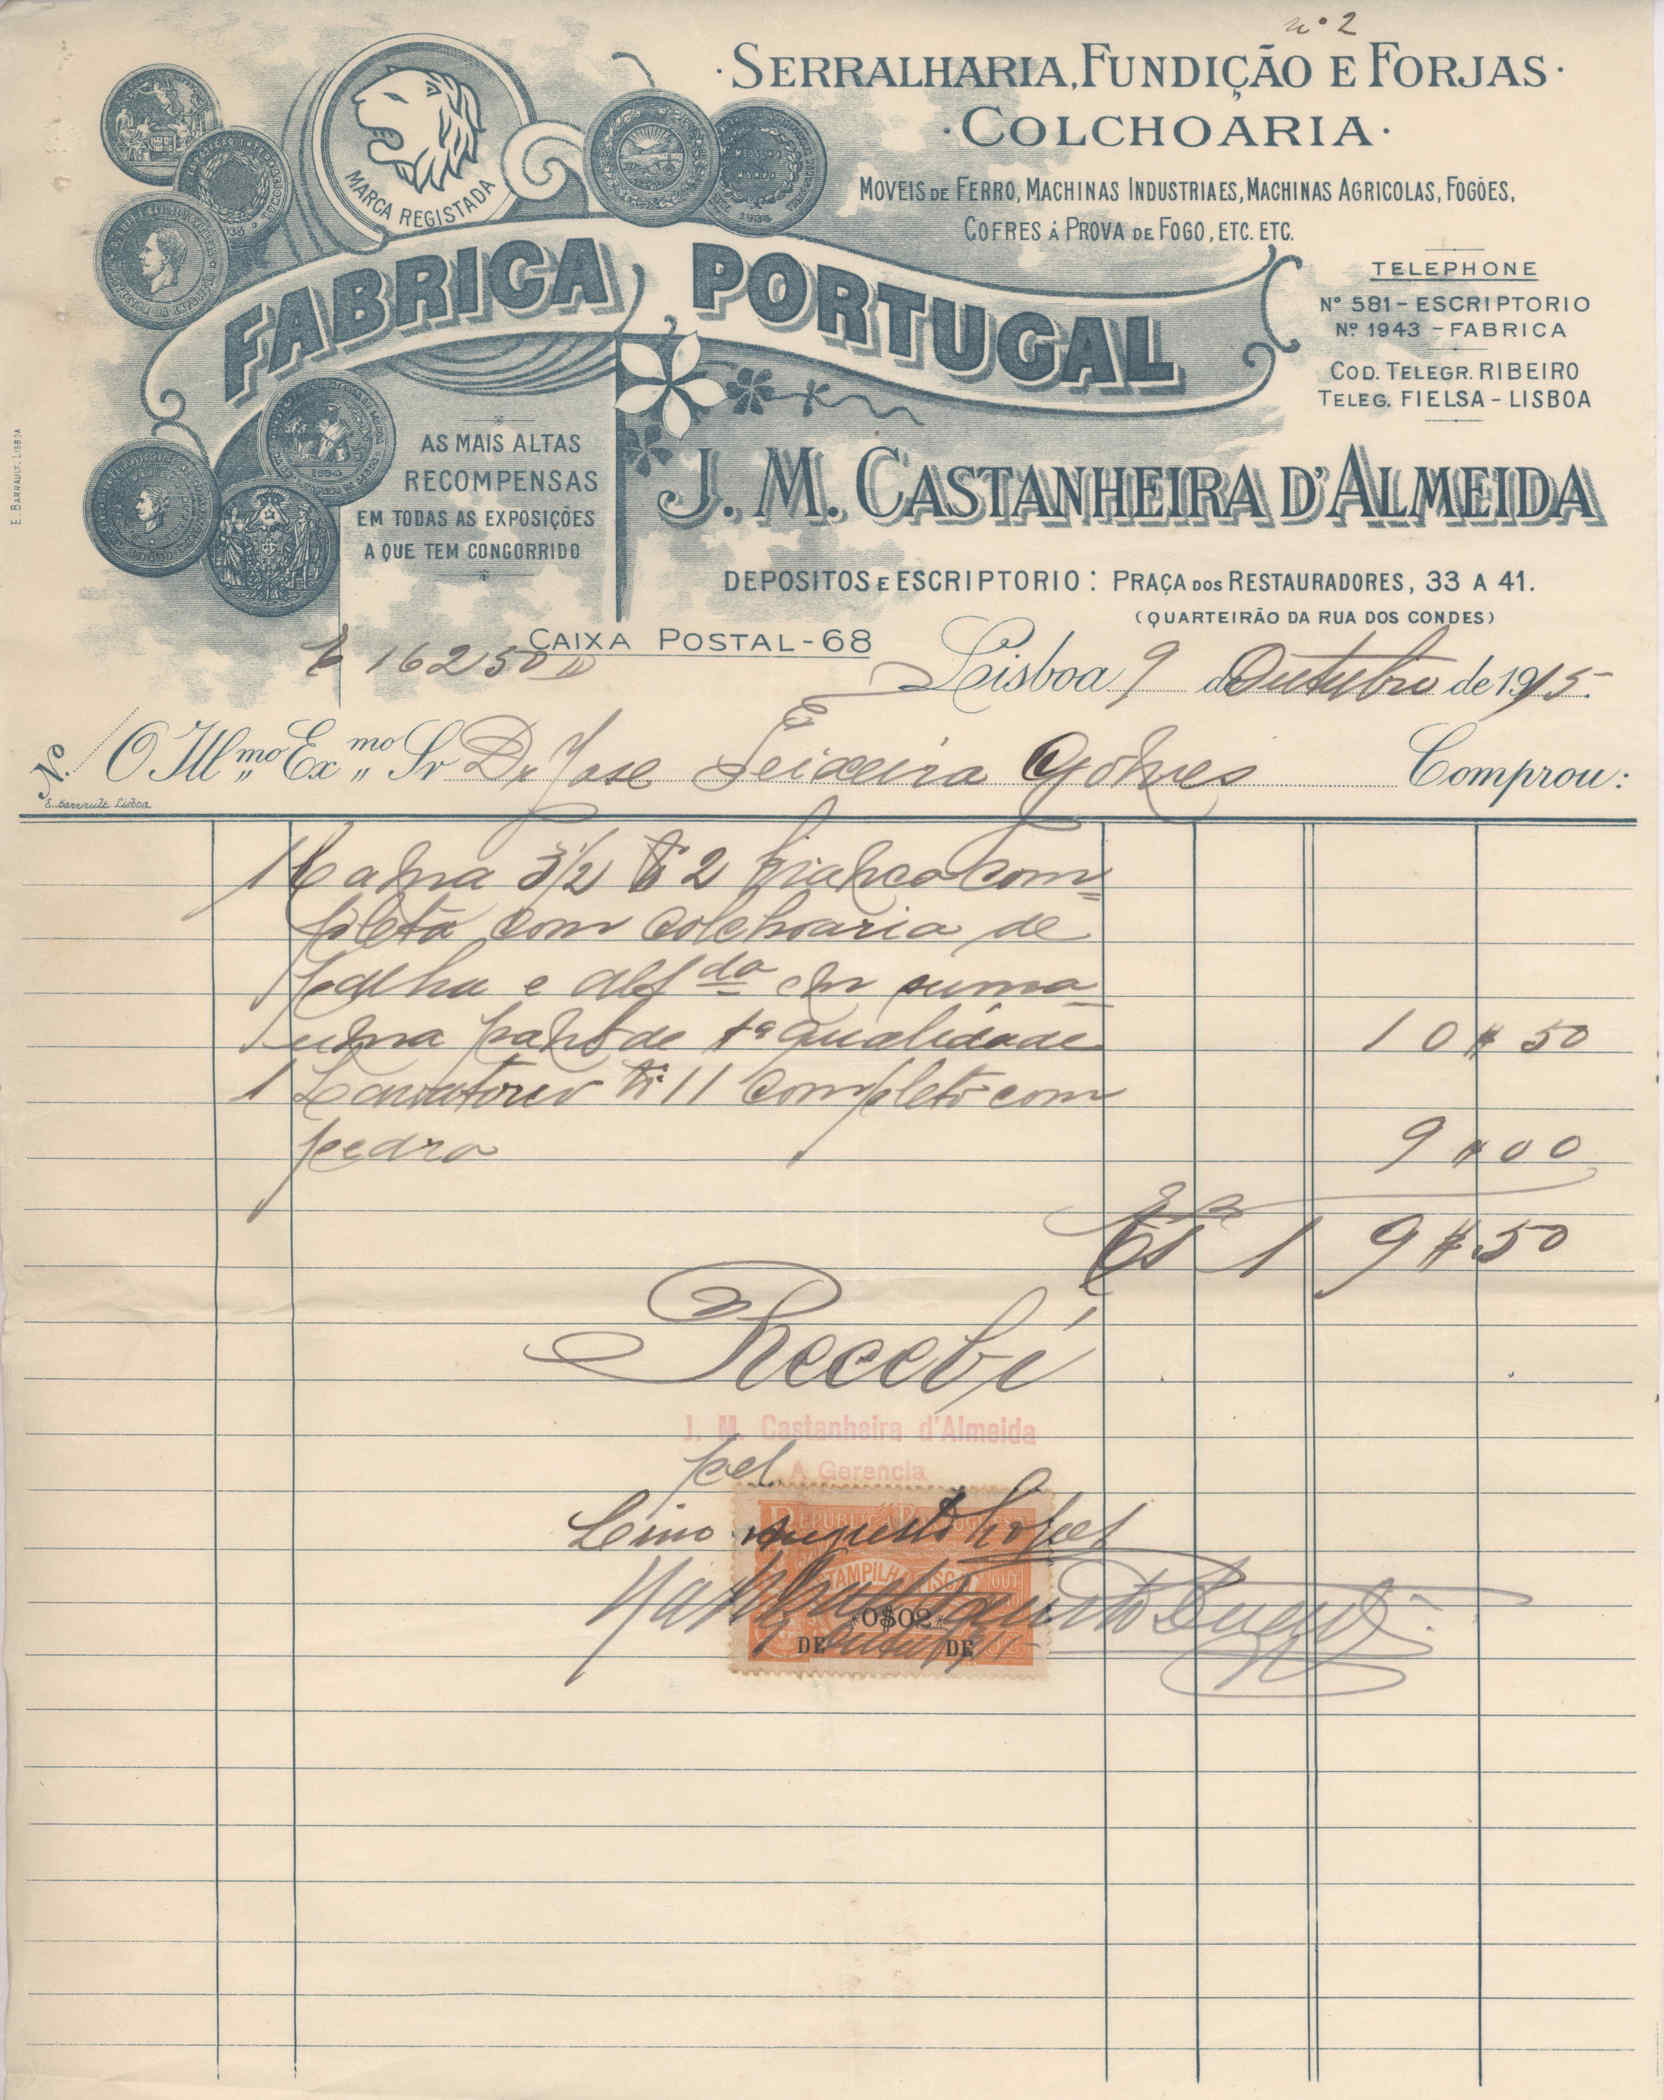 nº 2
· SERRALHARIA, FUNDIÇÃO E FORJAS ·
· COLCHOARIA ·
MOVEIS DE FERRO, MACHINAS INDUSTRIAES, MACHINAS AGRICOLAS, FOGÕES,
COFRES Á PROVA DE FOGO, ETC. ETC.
MARCA REGISTADA
FABRICA PORTUGAL
TELEPHONE
Nº 581 - ESCRIPTORIO
Nº 1943 - FABRICA
COD. TELEGR. RIBEIRO
TELEG. FIELSA - LISBOA
AS MAIS ALTAS
RECOMPENSAS
EM TODAS AS EXPOSIÇÕES
A QUE TEM CONCORRIDO
J. M. CASTANHEIRA D'ALMEIDA
DEPOSITOS E ESCRIPTORIO: PRAÇA DOS RESTAURADORES, 33 A 41.
(QUARTEIRÃO DA RUA DOS CONDES)
E. BARRAULT, LISBOA
CAIXA POSTAL - 68
16250
Lisboa 9 de Outubro de 1915
Nº O Illmo Exmo Sr Dr José Teixeira Gomes Comprou:
E. Barrault Lisboa
1 Cama 3 1/2 2 branca com=
pleta com colchoaria de
palha e alfda em suma
uma panno de 1ª qualidade 10$50
1 Lavatorio nº 11 completo com
pedra 9$00
19$50
Recebi
J. M. Castanheira d'Almeida
pel A Gerencia
Lino Augusto Lopes
REPUBLICA PORTUGUESA
ESTAMPILHA FISCAL
0$02
DE DE